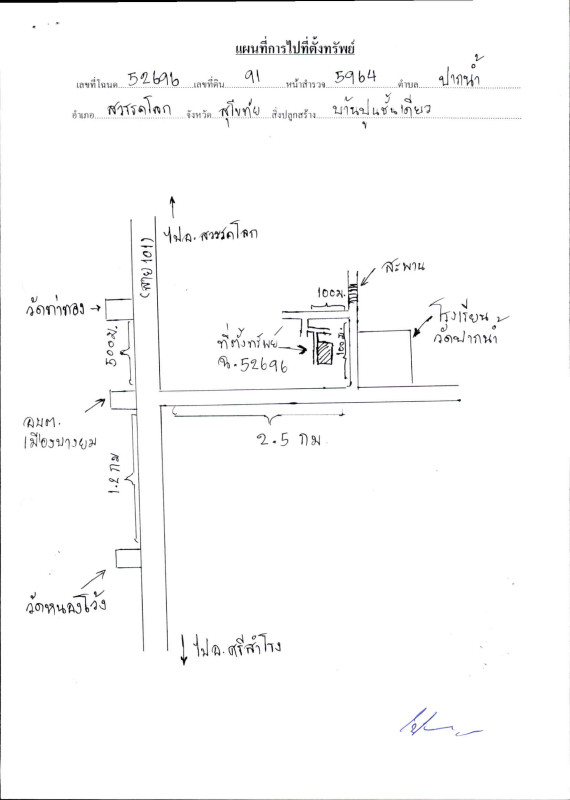 แผนที่การไปที่ตั้งทรัพย์
เลขที่โฉนด 52696 เลขที่ดิน 91 หน้าสำรวจ 5964 ตำบล ปากน้ำ
อำเภอ สวรรคโลก จังหวัด สุโขทัย สิ่งปลูกสร้าง บ้านปูนชั้นเดียว
ไป อ. สวรรคโลก
(สาย 101)
สะพาน
100 ม.
วัดท่าทอง
โรงเรียน
วัดปากน้ำ
500 ม.
ที่ตั้งทรัพย์
ฉ. 52696
100 ม.
อบต.
เมืองบางยม
2.5 กม
1.2 กม
วัดหนองโว้ง
ไป อ. ศรีสำโรง